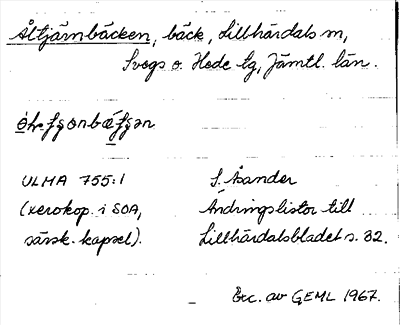 Åltjärnbäcken, bäck, Lillhärdals sn,
Svegs o. Hede tg, Jämtl. län.
ULMA 755:1
(xerokop. i SOA,
särsk. kapsel).
S. Åsander
Ändringslistor till
Lillhärdalsbladet s. 32.
Exc. av GEML 1967.